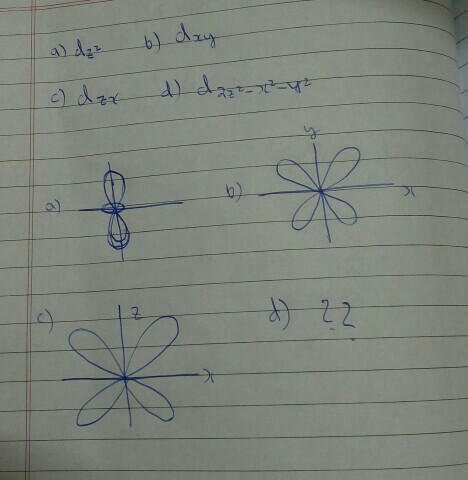 a) dz² b) dxy
c) dzx d) d2z²-x²-y²
a) b) y x
c) z x d) ??